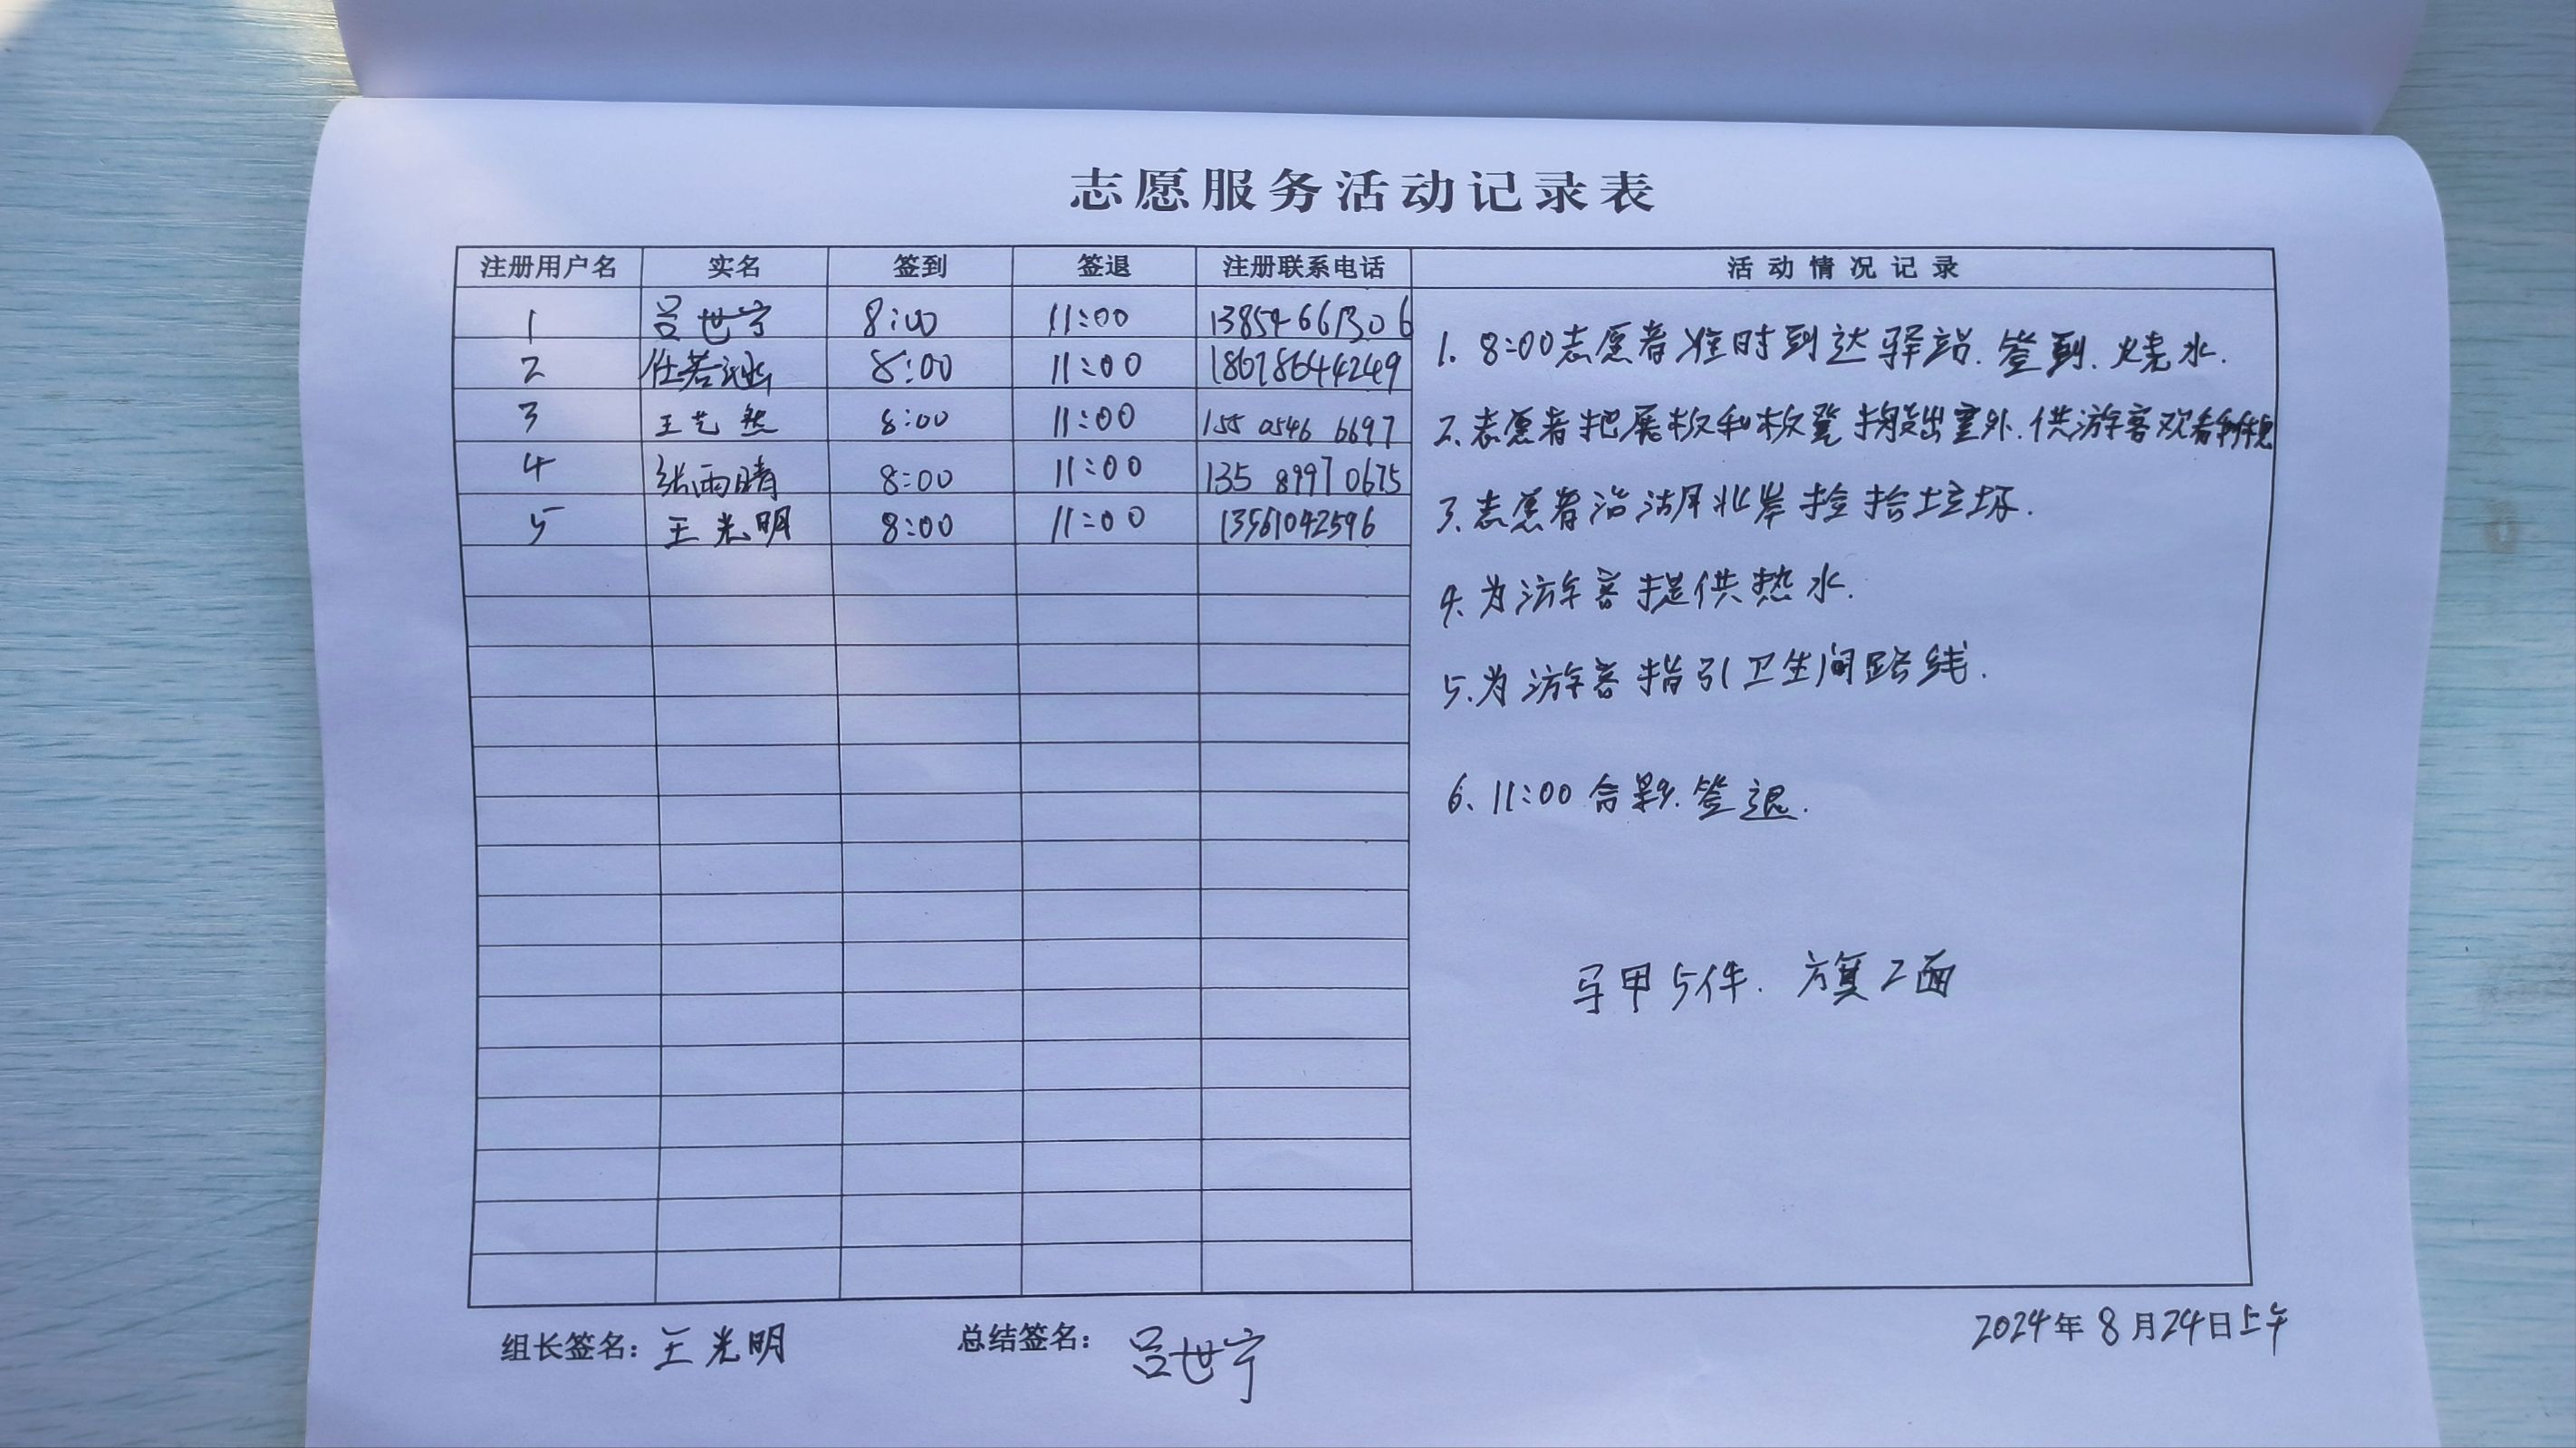 志愿服务活动记录表
注册用户名 实名 签到 签退 注册联系电话 活动情况记录
1 吕世宁 8:00 11:00 13854661306
2 任若 8:00 11:00 18678644249
3 王艺然 8:00 11:00 155 0546 6697
4 张雨晴 8:00 11:00 135 8997 0675
5 王光明 8:00 11:00 13561042596
1. 8:00志愿者准时到达驿站.签到.烧水.
2、志愿者把展板和板凳搬出室外.供游客观看和休息
3、志愿者沿湖北岸捡拾垃圾.
4、为游客提供热水.
5.为游客指引卫生间路线.
6、11:00合影.签退.
马甲5件. 旗2面
组长签名：王光明 总结签名：吕世宁 2024年8月24日上午